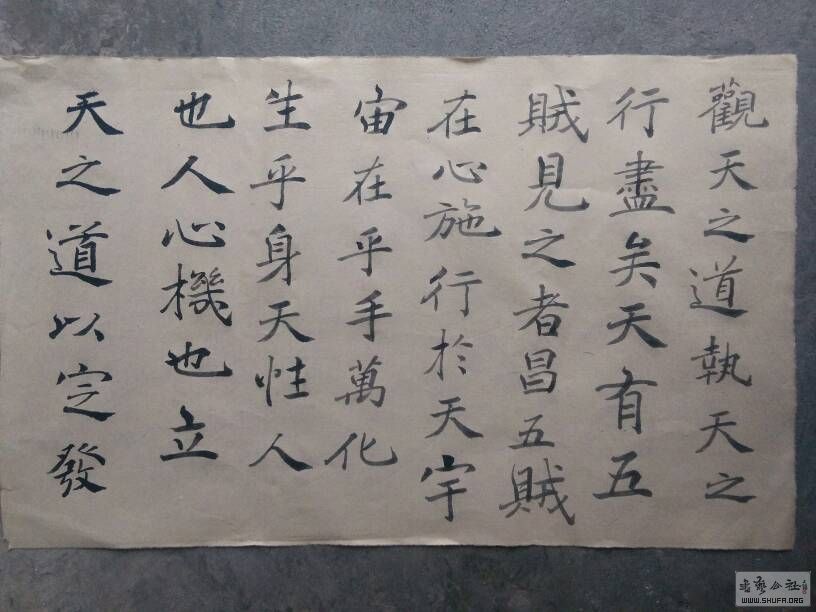 觀天之道執天之
行盡矣天有五
賊見之者昌五賊
在心施行於天宇
宙在乎手萬化
生乎身天性人
也人心機也立
天之道以定發
書藝公社
WWW.SHUFA.ORG